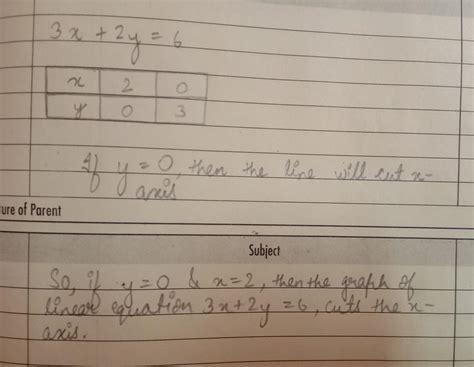 3x + 2y = 6
x 2 0
y 0 3
If y = 0, then the line will cut x-
axis
ure of Parent
Subject
So, if y=0 & x=2, then the graph of
linear equation 3x+2y=6, cuts the x-
axis.